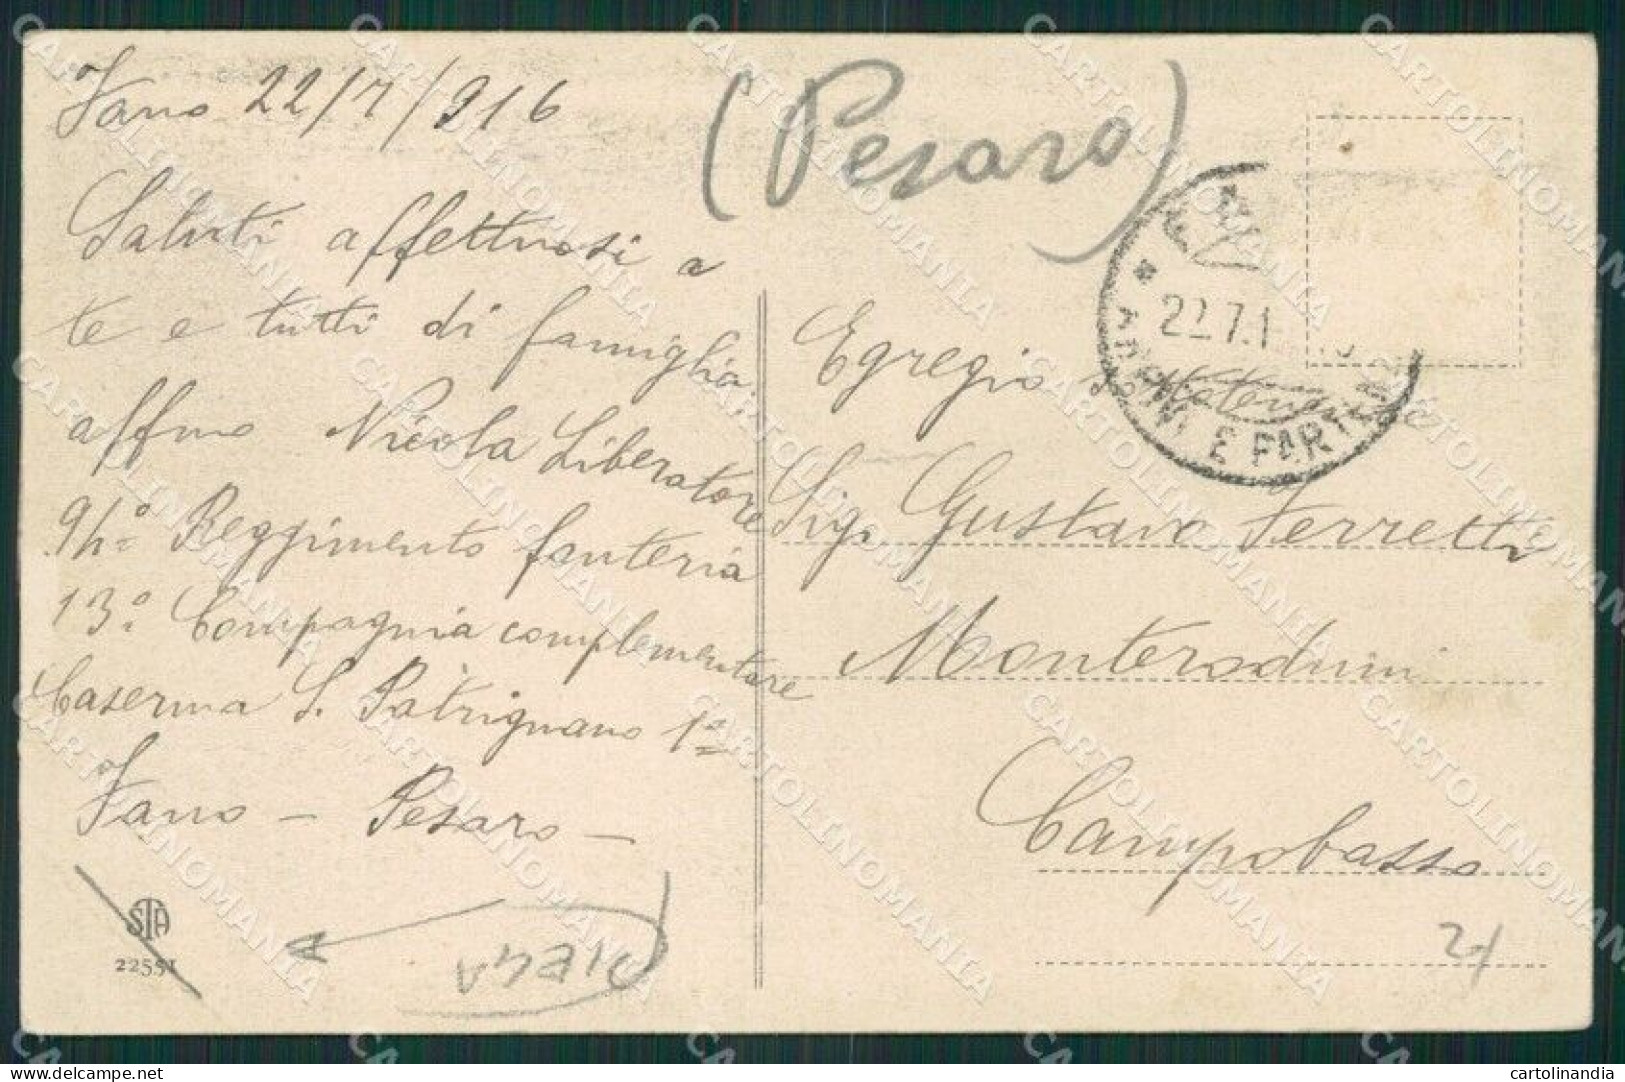 Fano 22/7/916
Saluti affettuosi a
te e tutti di famiglia
affmo Nicola Liberatore
94º Reggimento fanteria
13º Compagnia complementare
Caserma S. Patrignano 1ª
Fano - Pesaro -
STA
22551
PIEGA
(Pesaro)
22.7.1
ARRIVI E PARTENZE
Egregio
Sig. Gustavo Ferretti
Monteroduni
Campobasso
CARTOLINOMANIA
www.delcampe.net
cartolinandia